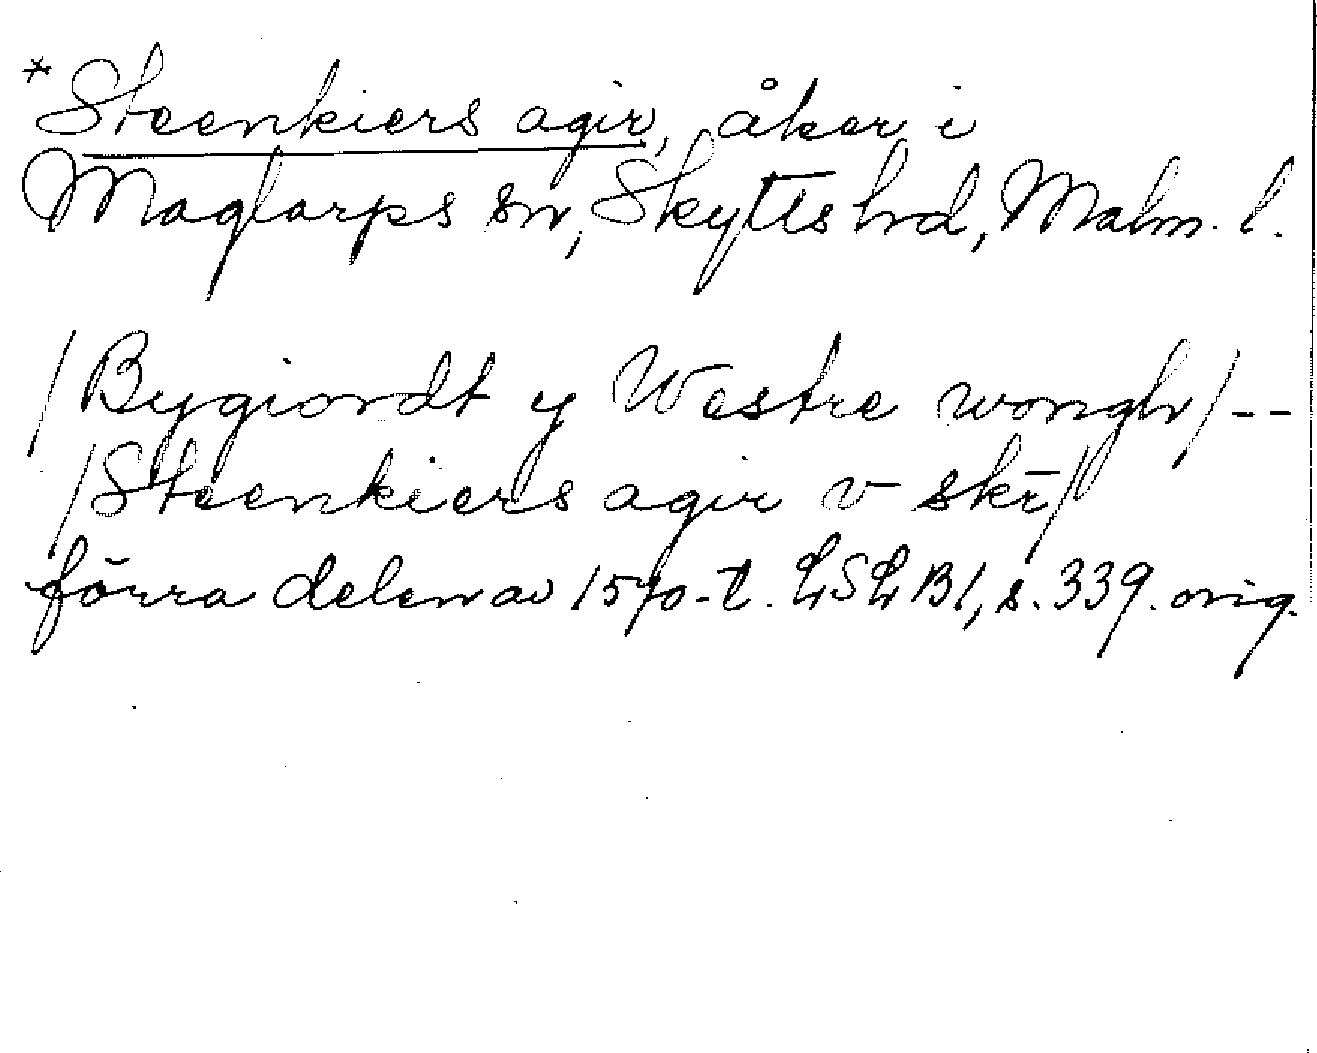 *Steenkiers agir, åker i
Maglarps sn, Skytts hrd, Malm. l.
/Bygiordt y Westre wongh/--
/Steenkiers agir v skr̄/
förra delen av 1570-t. LSLB1, s. 339. orig.